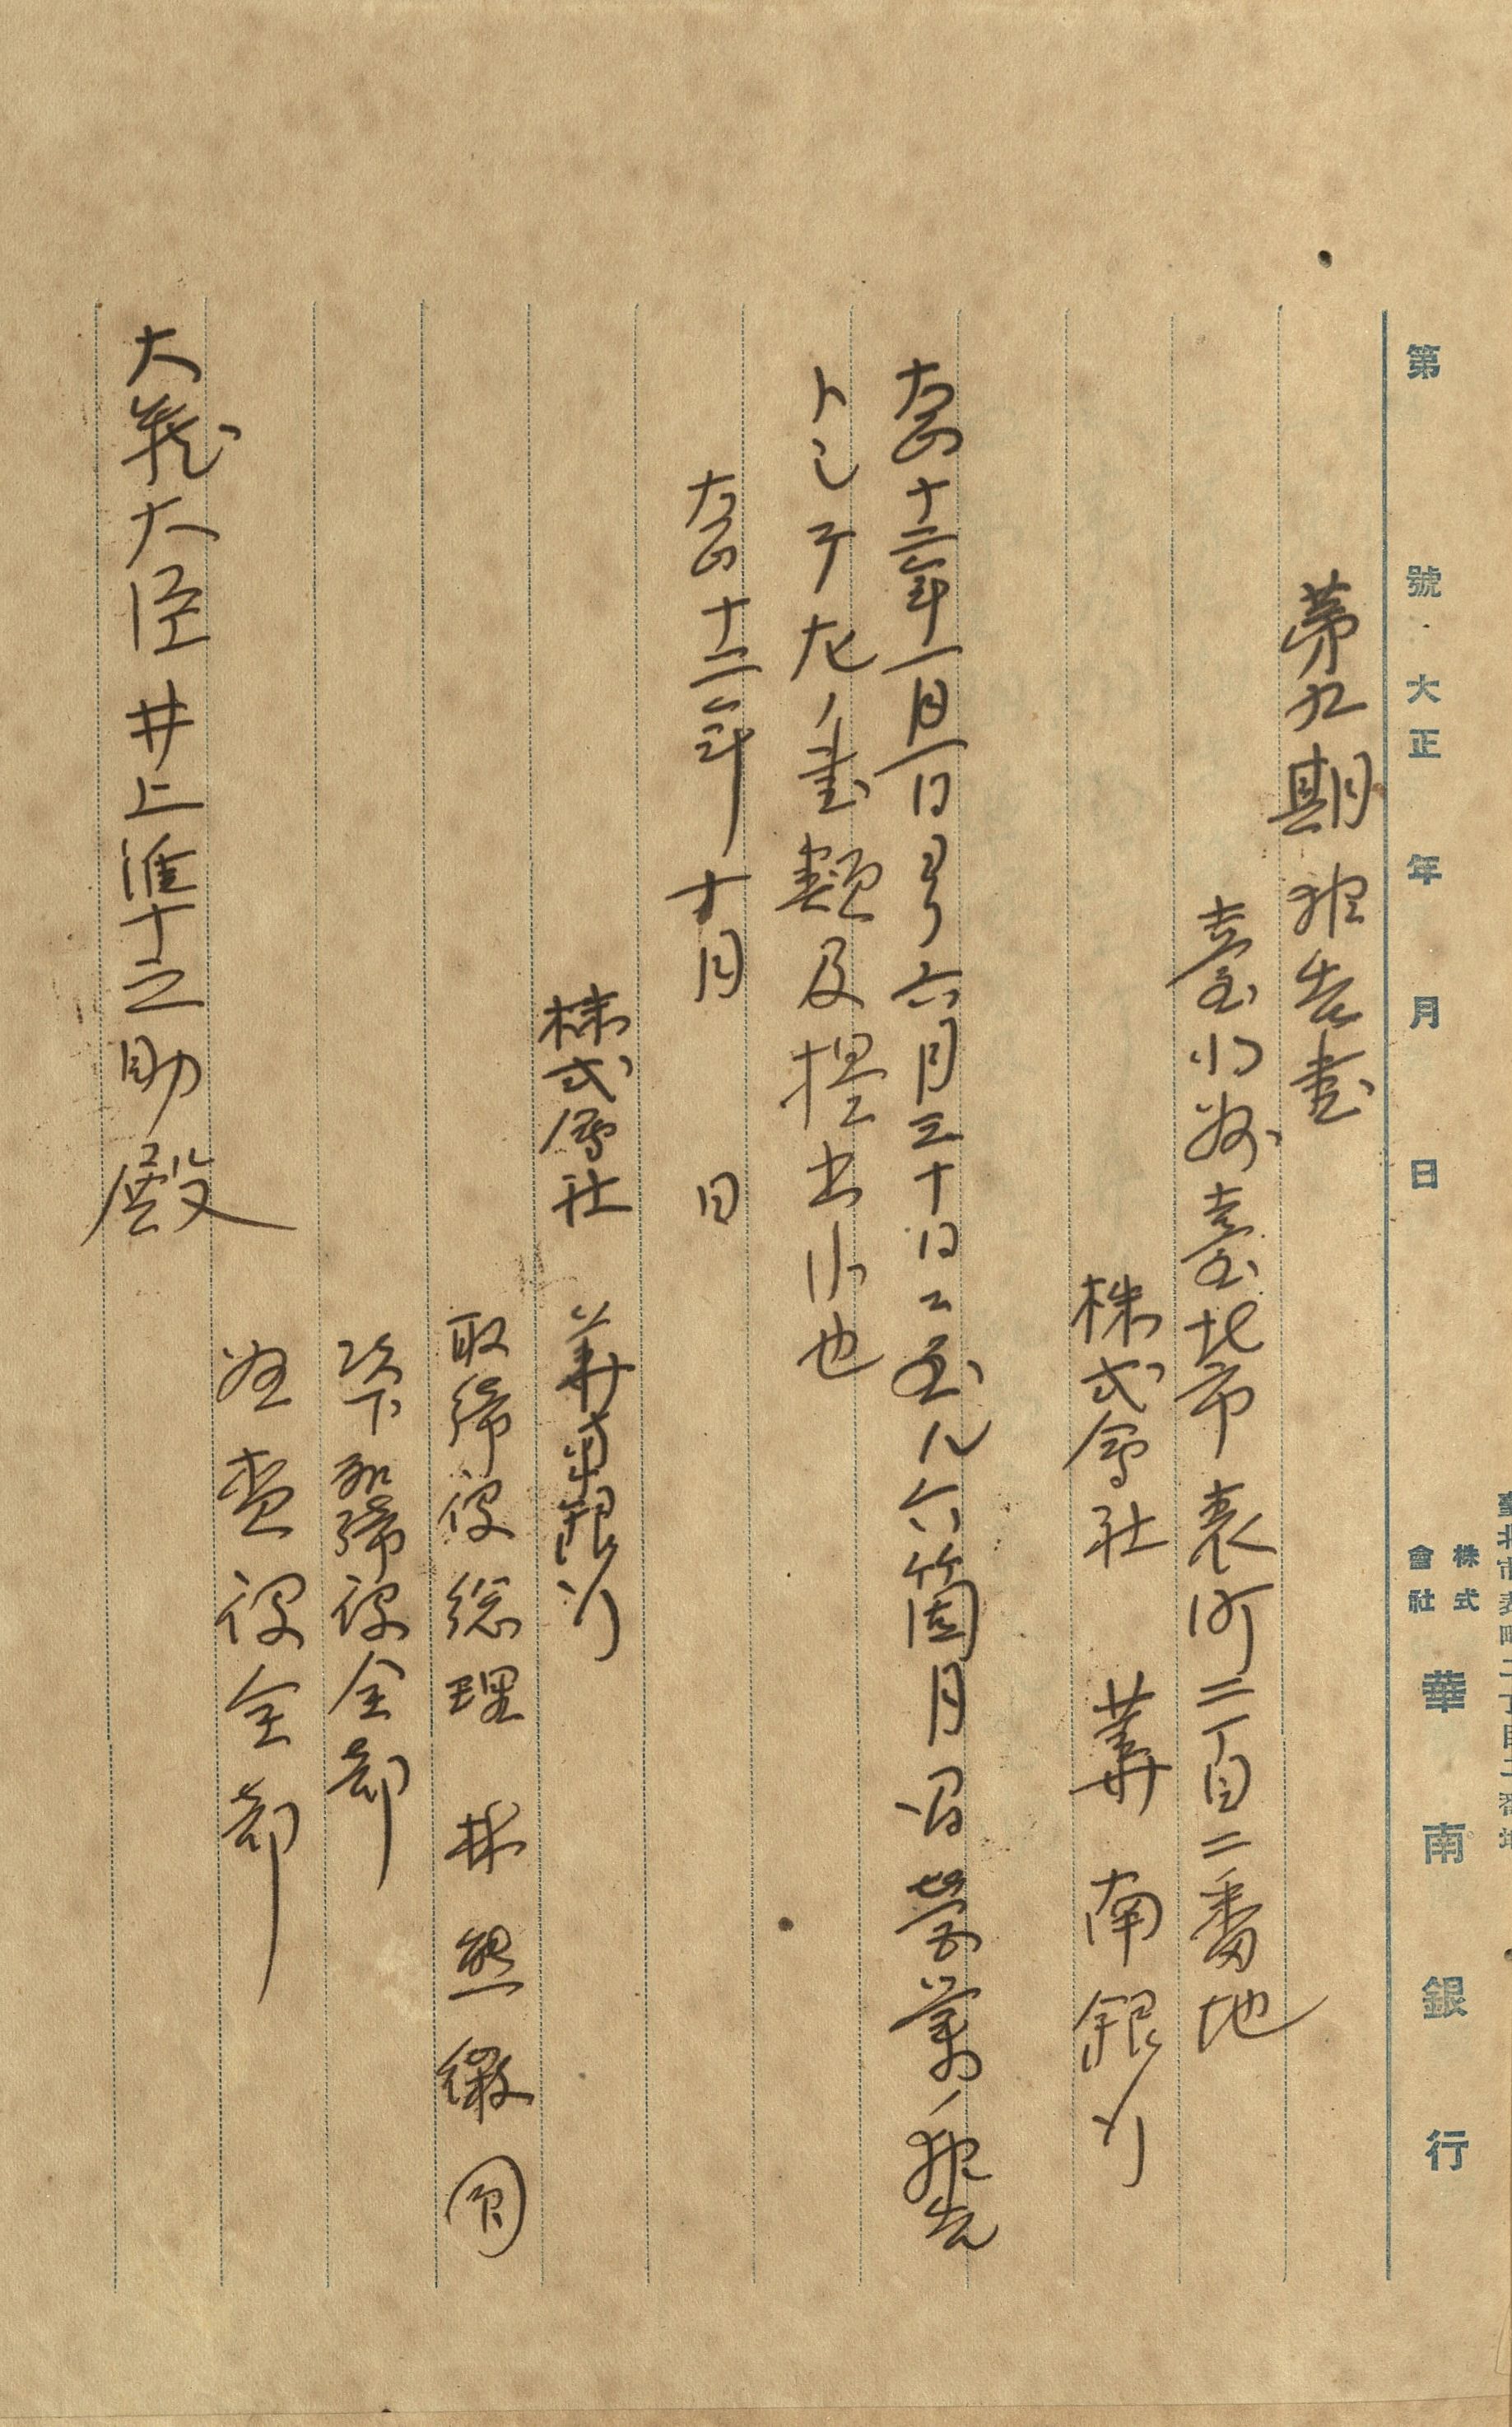 臺北市表町二丁目二番地
株式會社 華南銀行
第 號 大正 年 月 日
第九期報告書
臺北州臺北市表町二丁目二番地
株式會社 華南銀行
大正十二年一月一日ヨリ六月三十日ニ至ル六箇月間営業ノ報告
トシテ左ノ書類及提出候也
大正十二年 十月 日
株式會社 華南銀行
取締役総理 林熊徴 印
以下取締役全部
監査役全部
大蔵大臣 井上準之助殿